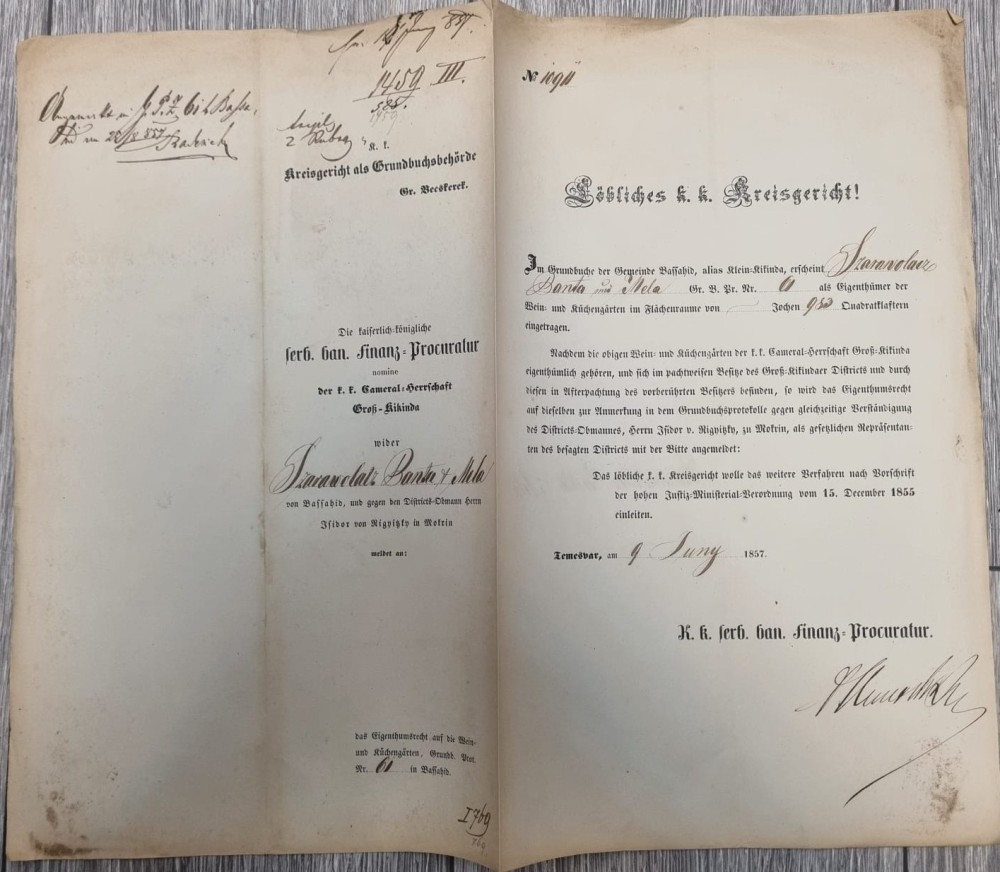 1459 III.
K. k.
Kreisgericht als Grundbuchsbehörde
Gr. Becskerek.
Die kaiserlich-königliche
serb. ban. Finanz-Procuratur
nomine
der k. k. Cameral-Herrschaft
Groß-Kikinda
wider
Banta & Mela
von Bassahid, und gegen den Districts-Obmann Herrn
Isidor von Rigyitzky in Mokrin
meldet an:
das Eigenthumsrecht auf die Wein-
und Küchengärten, Grundb. Prot.
Nr. 61 in Bassahid.
I 769
№ 10911
Löbliches k. k. Kreisgericht!
Im Grundbuche der Gemeinde Bassahid, alias Klein-Kikinda, erscheint
Banta und Mela Gr. B. Pr. Nr. 61 als Eigenthümer der
Wein- und Küchengärten im Flächenraume von — Jochen Quadratklaftern
eingetragen.
Nachdem die obigen Wein- und Küchengärten der k. k. Cameral-Herrschaft Groß-Kikinda
eigenthümlich gehören, und sich im pachtweisen Besitze des Groß-Kikindaer Districts und durch
diesen in Afterpachtung des vorberührten Besitzers befinden, so wird das Eigenthumsrecht
auf dieselben zur Anmerkung in dem Grundbuchsprotokolle gegen gleichzeitige Verständigung
des Districts-Obmannes, Herrn Isidor v. Rigyitzky, zu Mokrin, als gesetzlichen Repräsentan-
ten des besagten Districts mit der Bitte angemeldet:
Das löbliche k. k. Kreisgericht wolle das weitere Verfahren nach Vorschrift
der hohen Justiz-Ministerial-Verordnung vom 15. December 1855
einleiten.
Temesvar, am 9 Juny 1857.
K. k. serb. ban. Finanz-Procuratur.